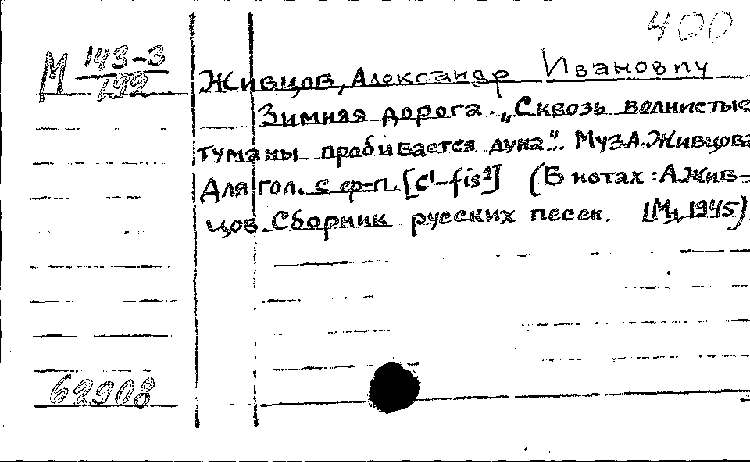 400
М 143-3
192
Живцов, Александр Иванович
Зимняя дорога. „Сквозь волнистые
туманы пробивается луна". Муз. А. Живцова
Для гол. с ф-п. [c¹-fis²] (В нотах: А. Жив-
цов. Сборник русских песен. [М., 1945)
62908